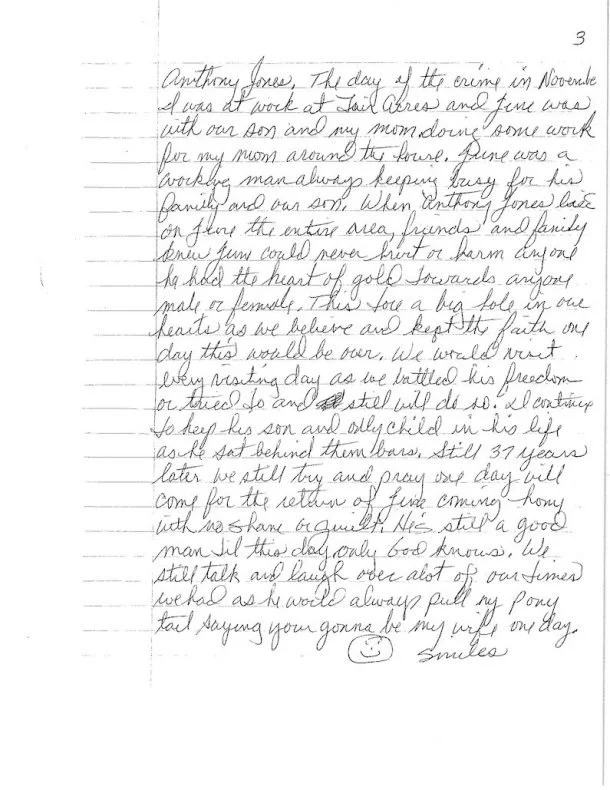 3
Anthony Jones. The day of the crime in Novembe
I was at work at Fair Acres and June was
with our son and my mom doing some work
for my mom around the house. June was a
working man always keeping busy for his
family and our son. When Anthony Jones
on June the entire area, friends and family
knew June could never hurt or harm anyone
he had the heart of gold towards anyone
male or female. This tore a big hole in our
hearts as we believe and kept the faith one
day this would be over. We would visit
every visiting day as we battled his freedom
or tried to and still will do so. I continue
to keep his son and only child in his life
as he sat behind them bars. Still 37 years
later we still try and pray one day will
come for the return of June coming home
with no shame or guilt. His still a good
man til this day only God knows. We
still talk and laugh over alot of our times
we had as he would always pull my pony
tail saying your gonna be my wife one day.
smiles